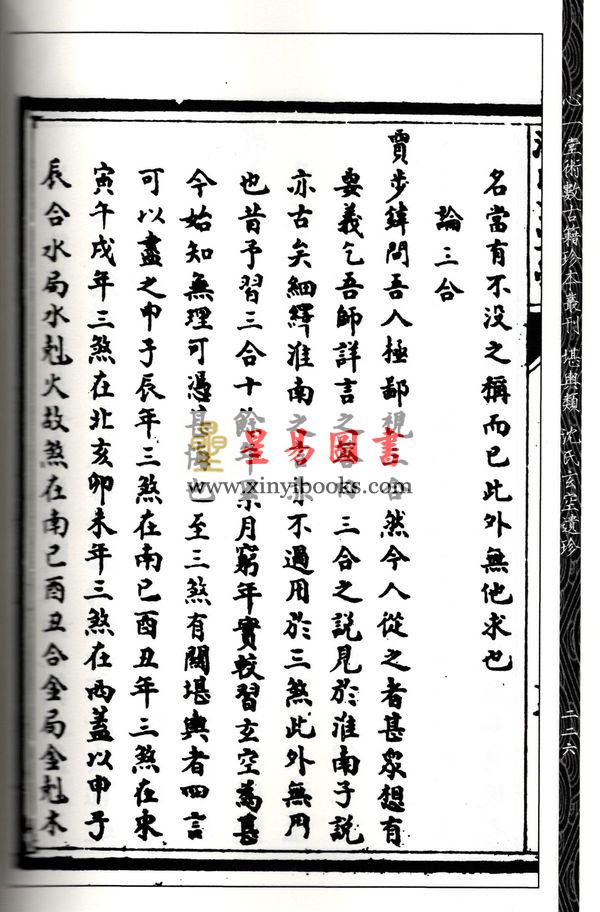 名當有不没之稱而已此外無他求也
論三合
賈步緯問吾人極鄙視三合然今人從之者甚衆想有
要義乞吾師詳言之答曰三合之說見於淮南子說
亦古矣細繹淮南之言亦不過用於三煞此外無用
也昔予習三合十餘年累月窮年實較習玄空為甚
今始知無理可憑甚悔也至三煞有關堪輿者四言
可以盡之申子辰年三煞在南巳酉丑年三煞在東
寅午戌年三煞在北亥卯未年三煞在西蓋以申子
辰合水局水剋火故煞在南巳酉丑合金局金剋木
心一堂術數古籍珍本叢刊 堪輿類 沈氏玄空遺珍
二二六
星易圖書
www.xinyibooks.com